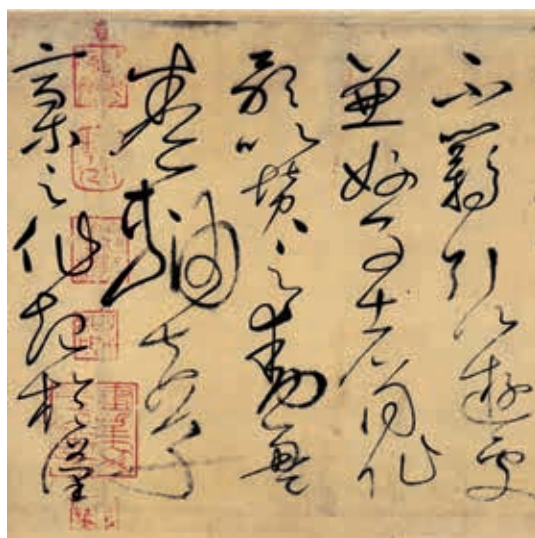 不羈引以遊處
兼好事者同作
歌以贊之動盈
卷軸夫草
稾之作起於漢